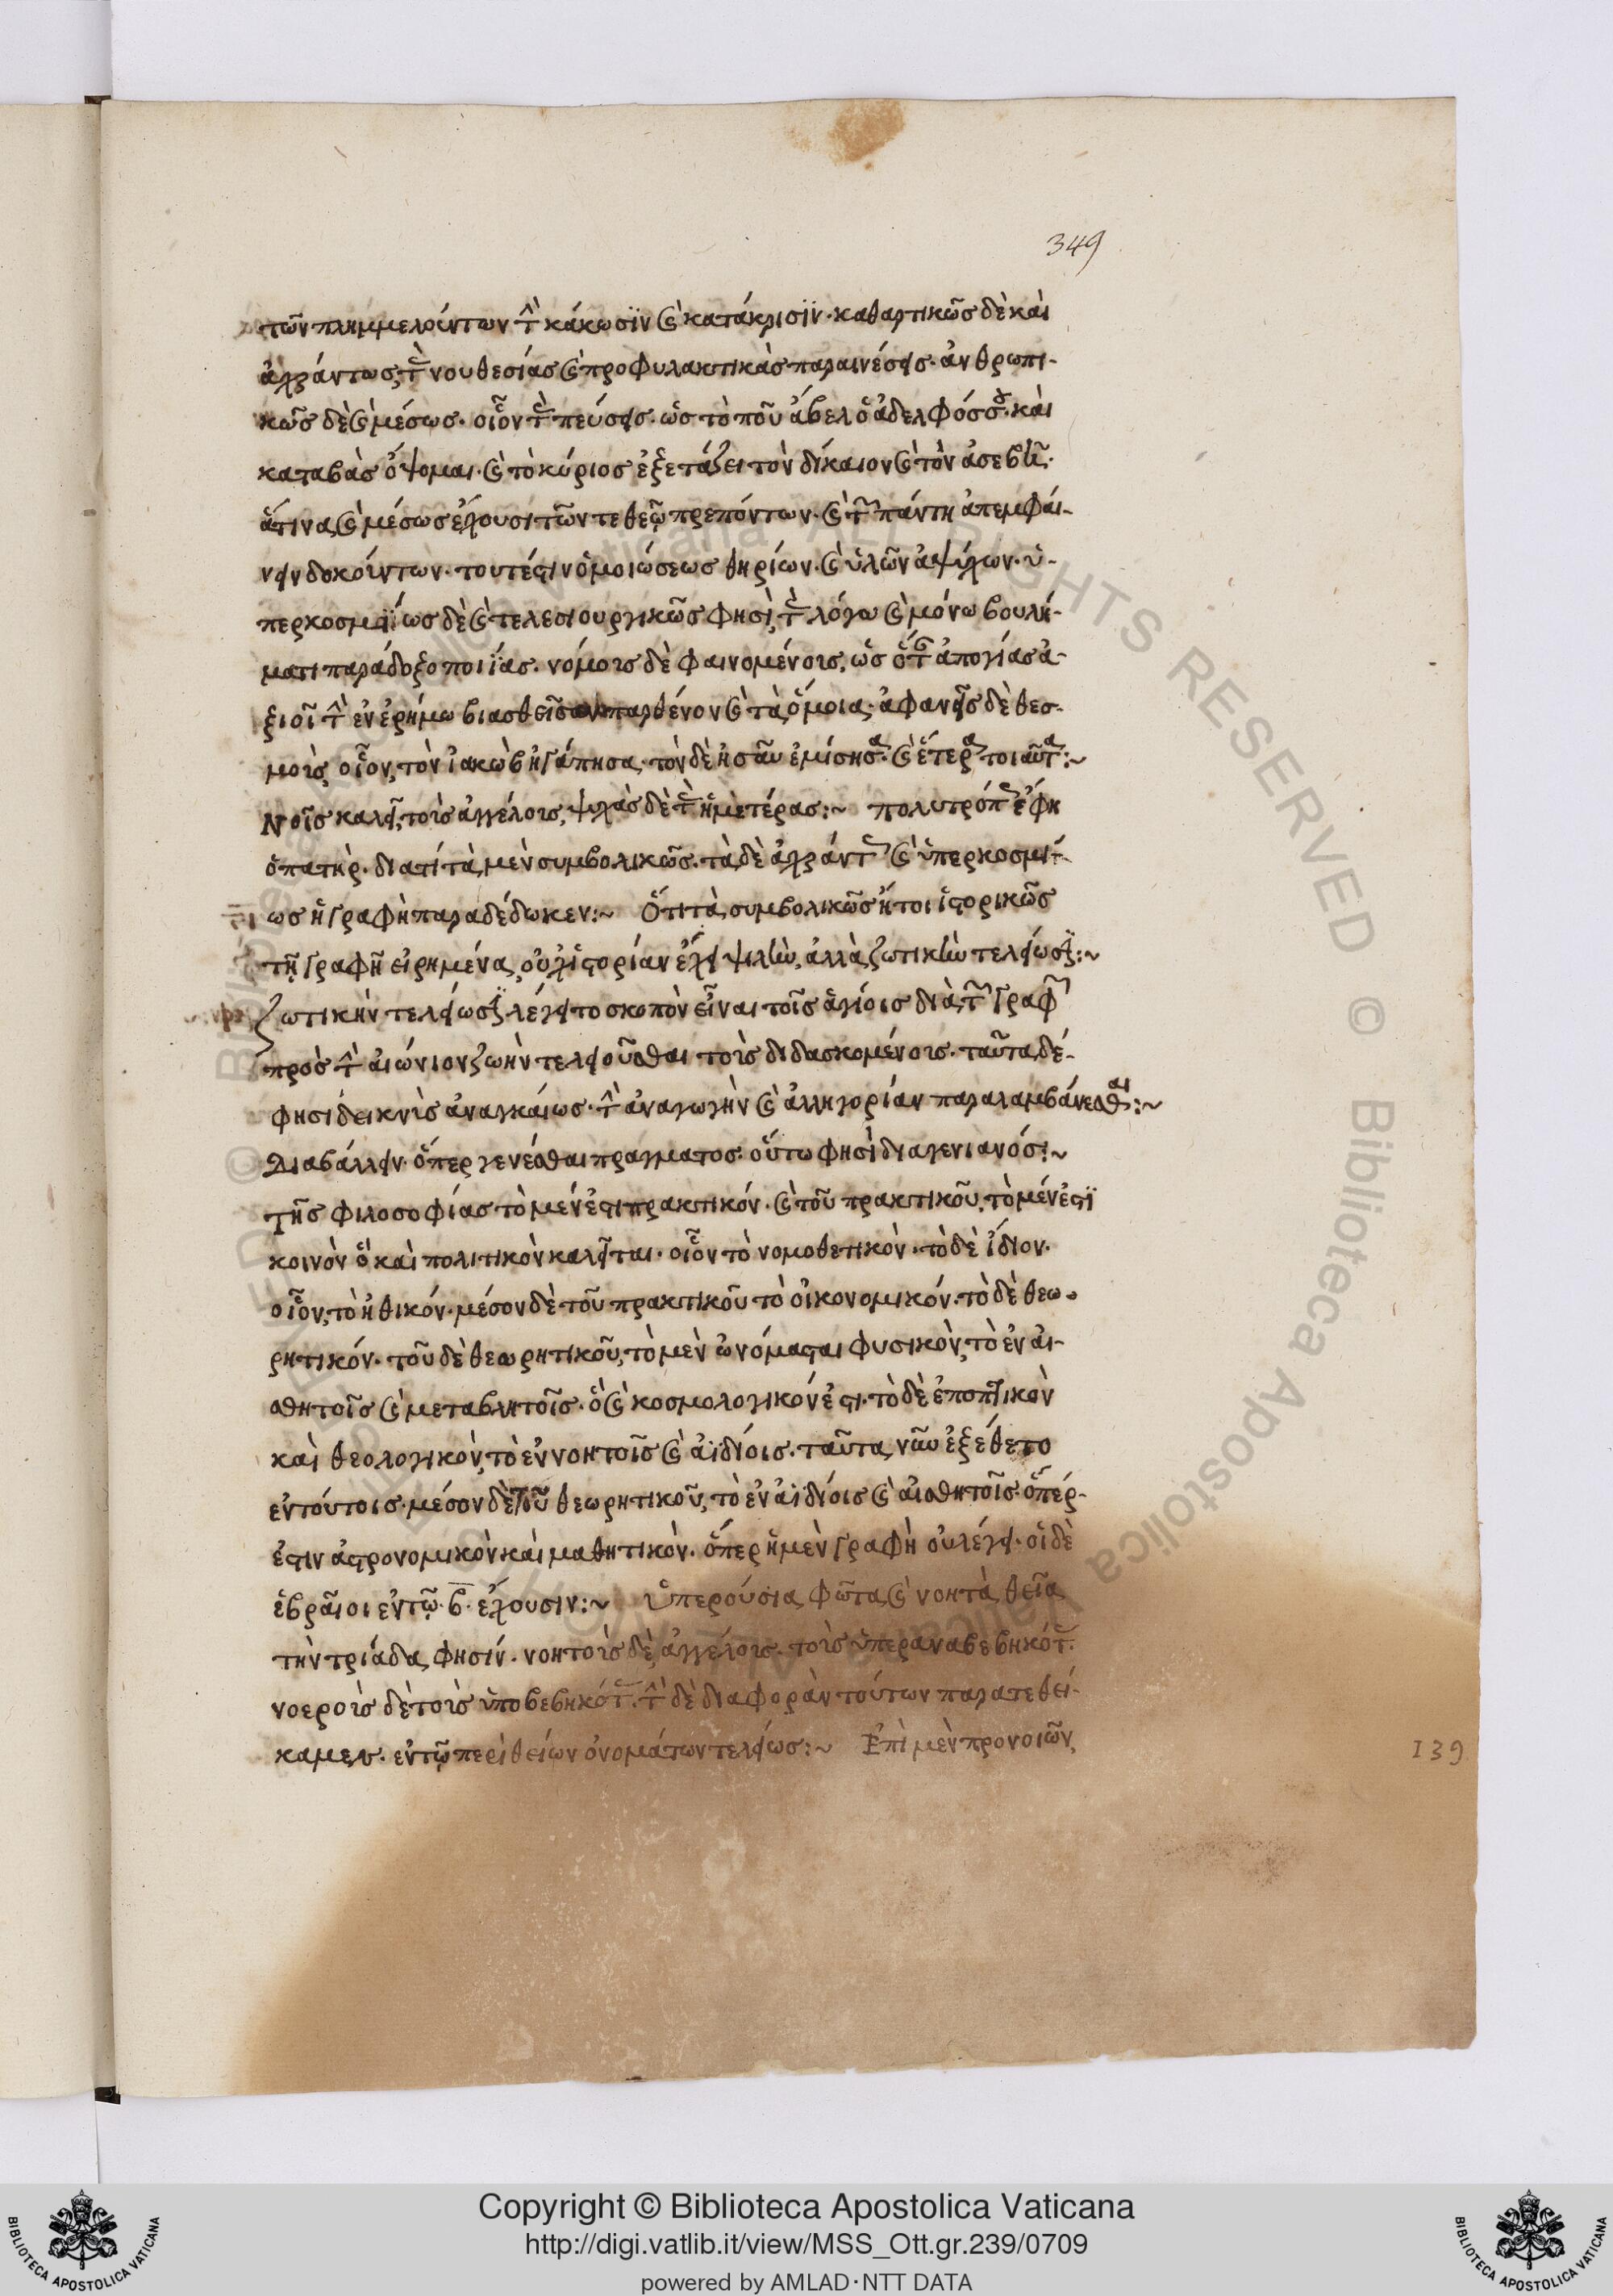 349
τῶν πλημμελούντων τὴν κάκωσϊν καὶ κατάκρισϊν· καθαρτικῶς δὲ καὶ
ἀχράντως, τὰς νουθεσίας καὶ προφυλακτικὰς παραινέσεις· ἀνθρωπι-
κῶς δὲ καὶ μέσως· οἷον τὰς πεύσεις· ὡς τὸ ποῦ ἄβελ ὁ ἀδελφός σου· καὶ
καταβὰς ὄψομαι· καὶ τὸ κύριος ἐξετάζει τὸν δίκαιον καὶ τὸν ἀσεβῆ·
ἅτινα καὶ μέσως ἔχουσι τῶν τε θεῷ πρεπόντων· καὶ τῶν πάντη ἀπεμφαί-
νειν δοκούντων· τουτέστιν ὁμοιώσεως θηρίων· καὶ ὑλῶν ἀψύχων· ὑ-
περκοσμίως δὲ καὶ τελεσιουργικῶς φησὶ, τὰς λόγω καὶ μόνω βουλή-
ματι παραδοξοποιΐας· νόμοις δὲ φαινομένοις, ὡς ἀπολογίας ἀ-
ξιοῖ τὴν ἐν ἐρήμω βιασθεῖσαν παρθένον καὶ τὰ ὅμοια· ἀφανεῖς δὲ θεσ-
μοὶς οἷον, τὸν ἰακὼβ ἠγάπησα· τὸν δὲ ἠσαῦ ἐμίσησα· καὶ ἕτερα τοιαῦτα:~
Νοῦς καλεῖ, τοὺς ἀγγέλους, ψυχὰς δὲ τὰς ἡμετέρας:~ πολυτρόπως ἔφη
ὁ πατὴρ· διατί τὰ μὲν συμβολικῶς· τὰ δὲ ἀχράντως καὶ ὑπερκοσμί-
ως ἡ γραφὴ παραδέδωκεν:~ Ὅτι τὰ συμβολικῶς ἤτοι ἱστορικῶς
τῇ γραφῇ εἰρημένα, οὐχ ἱστορίαν ἔχει ψιλὴν, ἀλλὰ ζωτικὴν τελείωσιν:~
ζωτικὴν τελείωσιν λέγει τὸ σκοπὸν εἶναι τοῖς ἁγίοις διὰ τῶν γραφῶν
πρὸς τὴν αἰώνιον ζωὴν τελειοῦσθαι τοὺς διδασκομένους· ταῦτα δέ
φησι δεικνὺς ἀναγκαίως· τὴν ἀναγωγὴν καὶ ἀλληγορίαν παραλαμβάνεσθαι:~
Διαβάλλειν· ὅπερ γενέσθαι πράγματος· οὕτω φησὶ διαγενιανός:~
Τῆς φιλοσοφίας τὸ μέν ἐστι πρακτικόν· καὶ τοῦ πρακτικοῦ, τὸ μέν ἐστϊ
κοινὸν ὃ καὶ πολιτικὸν καλεῖται· οἷον τὸ νομοθετικὸν· τὸ δὲ ἴδιον·
οἷον, τὸ ἠθικόν· μέσον δὲ τοῦ πρακτικοῦ τὸ οἰκονομικόν· τὸ δὲ θεω-
ρητικόν· τοῦ δὲ θεωρητικοῦ, τὸ μὲν ὠνόμασται φυσικὸν, τὸ ἐν αἰ-
σθητοῖς καὶ μεταβλητοῖς· ὃ καὶ κοσμολογικόν ἐστι· τὸ δὲ ἐποπτικὸν
καὶ θεολογικὸν, τὸ ἐν νοητοῖς καὶ ἀϊδίοις· ταῦτα νῦν ἐξέθετο
ἐν τούτοις· μέσον δὲ τοῦ θεωρητικοῦ, τὸ ἐν ἀϊδίοις καὶ αἰσθητοῖς· ὅπέρ
ἐστιν ἀστρονομικὸν καὶ μαθητικὸν· ὅπερ ἡ μὲν γραφὴ οὐ λέγει· οἱ δὲ
ἑβραῖοι ἐν τῷ β· ἔχουσιν:~ Ὑπερούσια φῶτα καὶ νοητὰ θεῖα
τὴν τριάδα φησίν· νοητοὺς δὲ ἀγγέλους· τοὺς ὑπεραναβεβηκότας·
νοεροὺς δὲ τοὺς ὑποβεβηκότας· τὴν δὲ διαφορὰν τούτων παρατεθεί-
καμεν· ἐν τῷ περὶ θείων ὀνομάτων τελείως:~ Ἐπὶ μὲν προνοιῶν,
139
© Biblioteca Apostolica Vaticana ALL RIGHTS RESERVED
Copyright © Biblioteca Apostolica Vaticana
http://digi.vatlib.it/view/MSS_Ott.gr.239/0709
powered by AMLAD·NTT DATA
BIBLIOTECA APOSTOLICA VATICANA
BIBLIOTECA APOSTOLICA VATICANA